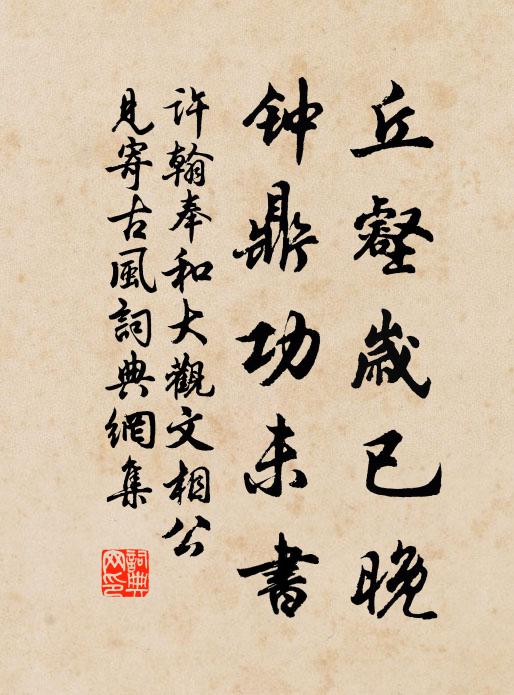 丘壑歲已晚
钟鼎功未書
許翰奉和大觀文相公
見寄古風詞典網集
詞典
网印